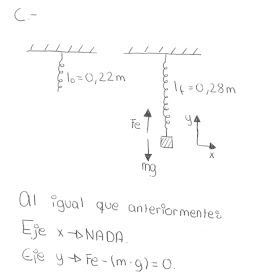 C.-
l₀=0,22m
lf=0,28m
Fe
y
x
mg
Al igual que anteriormente:
Eje x → NADA.
Eje y → Fe-(m·g)=0.